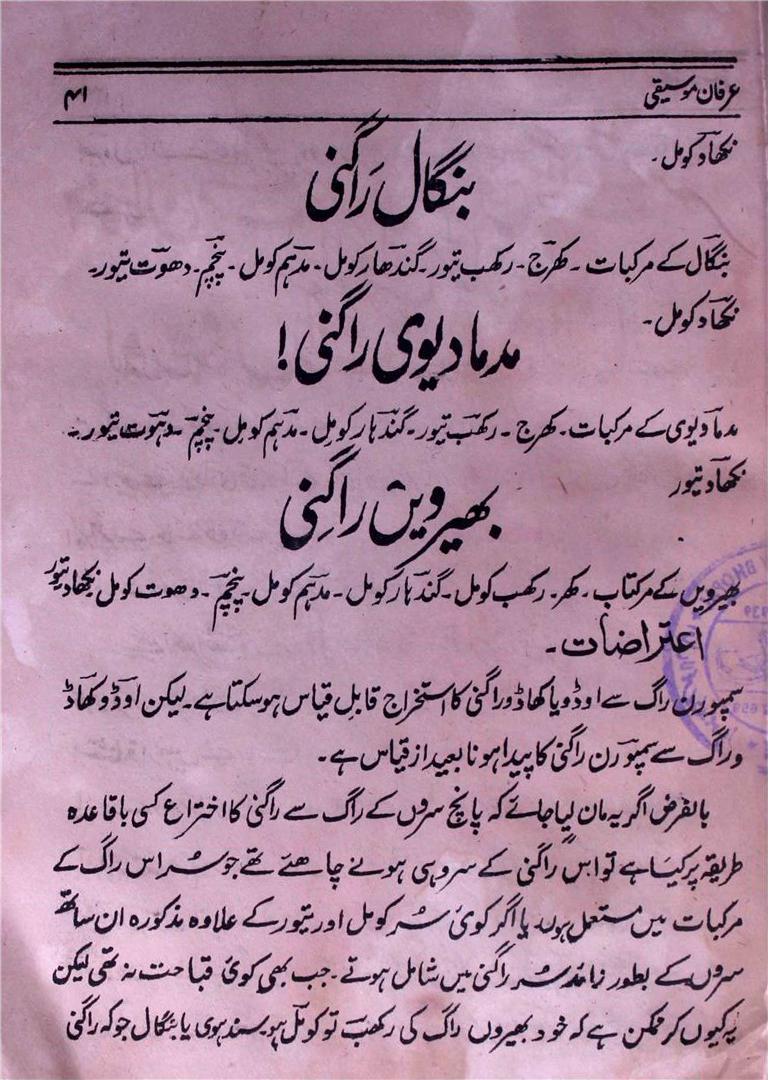 عرفان موسیقی ۴۱
نکھاد کومل۔
بنگال راگنی
بنگال کے مرکبات ۔ کھرج ۔ رکھب تیور ۔ گندھار کومل ۔ مدہم کومل ۔ پنچم ۔ دھوت تیور۔
نکھاد کومل۔
مدما دیوی راگنی!
مدما دیوی کے مرکبات ۔ کھرج ۔ رکھب تیور ۔ گندہار کومل ۔ مدہم کومل ۔ پنچم ۔ دہوت تیور ۔
نکھاد تیور
بھیرویں راگنی
بھیرویں کے مرکتاب ۔ کھر ۔ رکھب کومل ۔ گندہار کومل ۔ مدہم کومل ۔ پنچم ۔ دھوت کومل نکھاد تیور
اعتراضات ۔
سمپورن راگ سے اوڈو یا کھاڈو راگنی کا استخراج قابل قیاس ہوسکتا ہے۔ لیکن اوڈو کھاڈ
و راگ سے سمپورن راگنی کا پیدا ہونا بعید از قیاس ہے۔
بالفرض اگر یہ مان لیا جائے کہ پانچ سروں کے راگ سے راگنی کا اختراع کسی باقاعدہ
طریقہ پر کیسا ہے تو اس راگنی کے سر وہی ہونے چاھئے تھے جو سر اس راگ کے
مرکبات میں مستعمل ہوں یا اگر کوئی سُر کومل اور تیور کے علاوہ مذکورہ ان ساتھ
سروں کے بطور زائد سُر راگنی میں شامل ہوتے۔ جب بھی کوئی قباحت نہ تھی لیکن
یہ کیوں کر ممکن ہے کہ خود بھیروں راگ کی رکھب تو کومل ہو سندہوی یا بنگال جو کہ راگنی